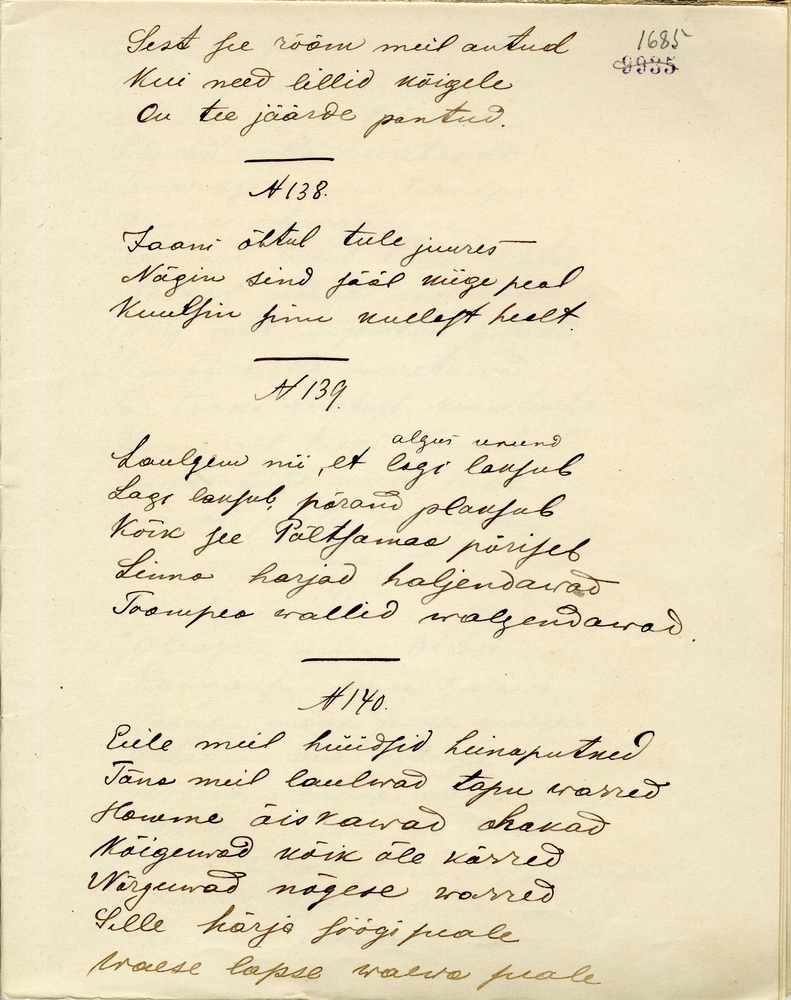 Sest see rõõm meil antud
1685
9935
Kui need lillid kõigele
On tee jäärde pantud.
N 138.
Jaani õhtul tule juures
Nägin sind sääl kiige peal
Kuulsin sinu kullast healt.
N 139.
algus unund
Laulgem nii, et lagi laksub
Lagi laksub, põrand plaksub
Kõik see Põltsamaa põriseb
Linna harjad haljendawad
Toompea wallid walgendawad.
N 140.
Eile meil hüüdsid heinaputked
Täna meil laulwad tapu warred
Homme äiskawad ohakad
Kõiguwad kõik õle kõrred
Nõrguwad nõgese warred
Selle härja söögi peale
Waese lapse waewa peale